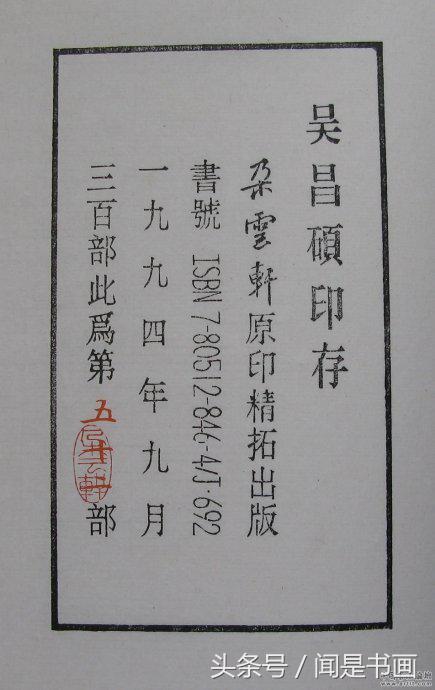 吴昌碩印存
朵雲軒原印精拓出版
書號 ISBN 7-80512-846-4/J·692
一九九四年九月
三百部此爲第五十一部
朵雲軒
头条号 / 闻是书画